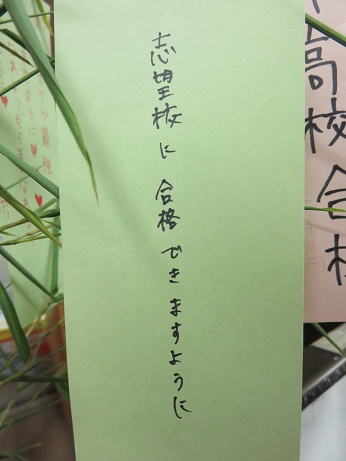 高校合格
志望校に 合格できますように